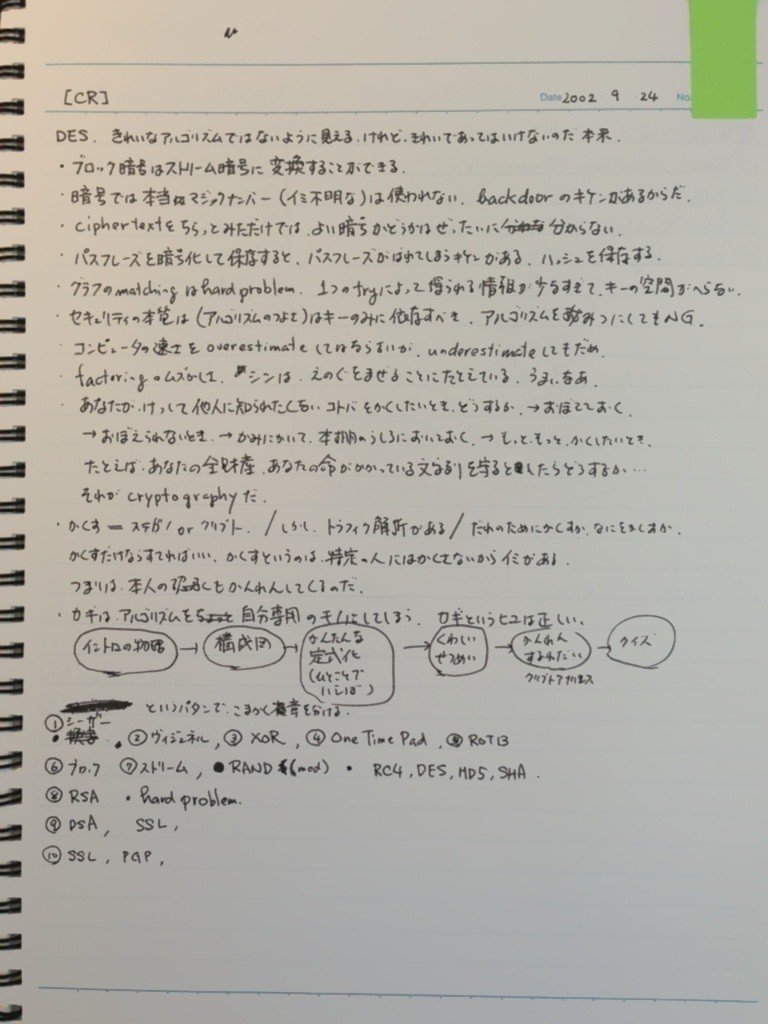 [CR] Date 2002 9 24 No.
DES. きれいなアルゴリズムではないように見える.けれど.きれいであってはいけないのだ 本来.
・ブロック暗号はストリーム暗号に変換することができる.
・暗号では本当にマジックナンバー(イミ不明な)は使われない. backdoorのキケンがあるからだ.
・ciphertextをちらっとみただけでは.よい暗号かどうかはぜったいに分からない.
・パスフレーズを暗号化して保存すると、パスフレーズがばれてしまうキケンがある.ハッシュを保存する.
・グラフのmatchingはhard problem. 1つのtryによって得られる情報が少なすぎて.キーの空間がへらない.
・セキュリティの本質は(アルゴリズムのつよさ)はキーのみに依存すべき.アルゴリズムを秘みつにしてもNG.
・コンピュータの速さをoverestimateしてはならないが.underestimateしてもだめ.
・factoringのムズかしさ. シンは.えのぐをまぜることにたとえている.うまいなあ.
・あなたが.けっして他人に知られたくないコトバをかくしたいとき.どうするか.→おぼえておく
→おぼえられないとき.→かみにかいて.本棚のうしろにおいておく→もっと.もっと.かくしたいとき.
たとえば.あなたの全財産.あなたの命がかかっている文字列を守るとしたらどうするか…
それがcryptographyだ.
・かくす ー ステガノ or クリプト. / しかし.トラフィック解析がある / だれのためにかくすか.なにをかくすか.
かくすだけならすてればいい.かくすというのは.特定の人にはかくさないからイミがある.
つまりは.本人の認証ともかんれんしてくるのだ.
・カギは.アルゴリズムを自分専用のモノにしてしまう. カギというヒユは正しい.
イントロの物語 → 構成図 → かんたんな定式化(ひとことでいえば) → くわしいせつめい → かんれんするわだい → クイズ
クリプトアナリシス
というパタンで.こまかく章を分ける.
①シーザー
・換字 . ②ヴィジュネル, ③XOR, ④One Time Pad, ⑤ROT13
⑥ブロック ⑦ストリーム, ●RAND (mod) ・ RC4, DES, MD5, SHA.
⑧RSA ・hard problem.
⑨DSA, SSL,
⑩SSL, PGP,